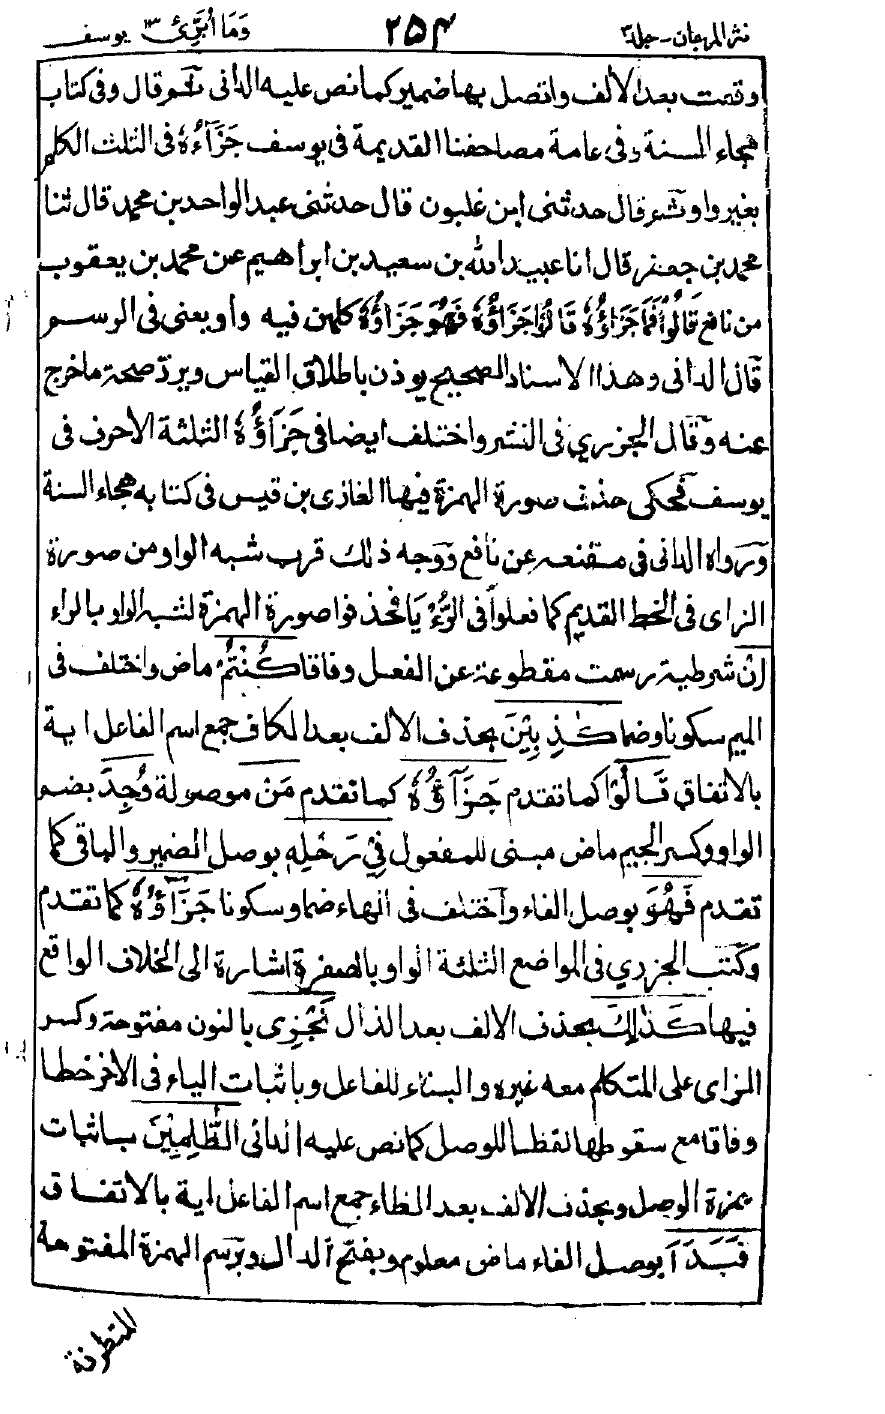 نثر المرجان - جلد ٣ ٢٥٤ وَمَا أُبَرِّئُ ١٣ يوسف
وقعت بعد الألف واتصل بها ضمير كما نص عليه الدانى ثم قال وفى كتاب
هجاء السنة وفى عامة مصاحفنا القديمة فى يوسف جَزَآءُهٗ فى الثلث الكلم
بغير واو ثم قال حدثنى ابن غلبون قال حدثنى عبد الواحد بن محمد قال ثنا
محمد بن جعفر قال انا عبيد الله بن سعيد بن ابراهيم عن محمد بن يعقوب
من نافع قَالُوْا فَمَا جَزَاؤُهٗ قَالُوْا جَزَاؤُهٗ فَهُوَ جَزَاؤُهٗ كلهن فيه واو يعنى فى الرسم
قال الدانى وهذا الاسناد الصحيح يوذن باطلاق القياس ويردّ صحة ما خرج
عنه وقال الجزرى فى النشر واختلف ايضا فى جَزَآؤُهٗ الثلثة الاحرف فى
يوسف فحكى حذف صورة الهمزة فيها الغازى بن قيس فى كتابه هجاء السنة
ورواه الدانى فى مقنعه عن نافع ووجه ذلك قرب شبه الواو من صورة
الزاى فى الخط القديم كما فعلوا فى الرُّءْيَا فحذفوا صورة الهمزة لشبه الواو بالراء
اِنْ شرطية رسمت مقطوعة عن الفعل وفاقا كُنْتُمْ ماض واختلف فى
الميم سكونا وضما كٰذِبِيْنَ بحذف الالف بعد الكاف جمع اسم الفاعل اية
بالاتفاق قَالُوْا كما تقدم جَزَآؤُهٗ كما تقدم مَنْ موصولة وُجِدَ بضم
الواو وكسر الجيم ماض مبنى للمفعول فِيْ رَحْلِهٖ بوصل الضمير والباقى كما
تقدم فَهُوَ بوصل الفاء واختلف فى الهاء ضما وسكونا جَزَآؤُهٗ كما تقدم
وكتب الجزرى فى المواضع الثلثة الواو بالصفرة اشارة الى الخلاف الواقع
فيها كَذٰلِكَ بحذف الالف بعد الذال نَجْزِى بالنون مفتوحة وكسر
الزاى على المتكلم معه غيره والبناء للفاعل وباثبات الياء فى الاخر خطا
وفاقا مع سقوطها لفظا للوصل كما نص عليه الدانى الظّٰلِمِيْنَ باثبات
همزة الوصل وبحذف الالف بعد الظاء جمع اسم الفاعل اية بالاتفاق
فَبَدَاَ بوصل الفاء ماض معلوم وبفتح الدال وبرسم الهمزة المفتوحة
المتطرفة